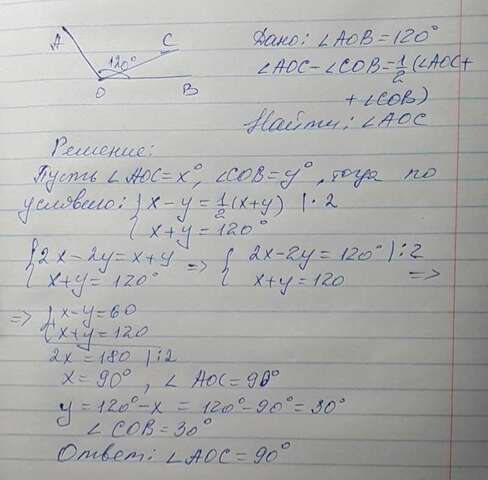 A
C
120°
O
B
Дано: ∠AOB=120°
∠AOC-∠COB=1/2(∠AOC+
+∠COB)
Найти: ∠AOC
Решение:
Пусть ∠AOC=x°, ∠COB=y°, тогда по
условию: { x-y=1/2(x+y) |·2
x+y=120°
{ 2x-2y=x+y => { 2x-2y=120° |:2
x+y=120° x+y=120 =>
=> { x-y=60
+ x+y=120
2x=180 |:2
x=90°, ∠AOC=90°
y=120°-x=120°-90°=30°
∠COB=30°
Ответ: ∠AOC=90°